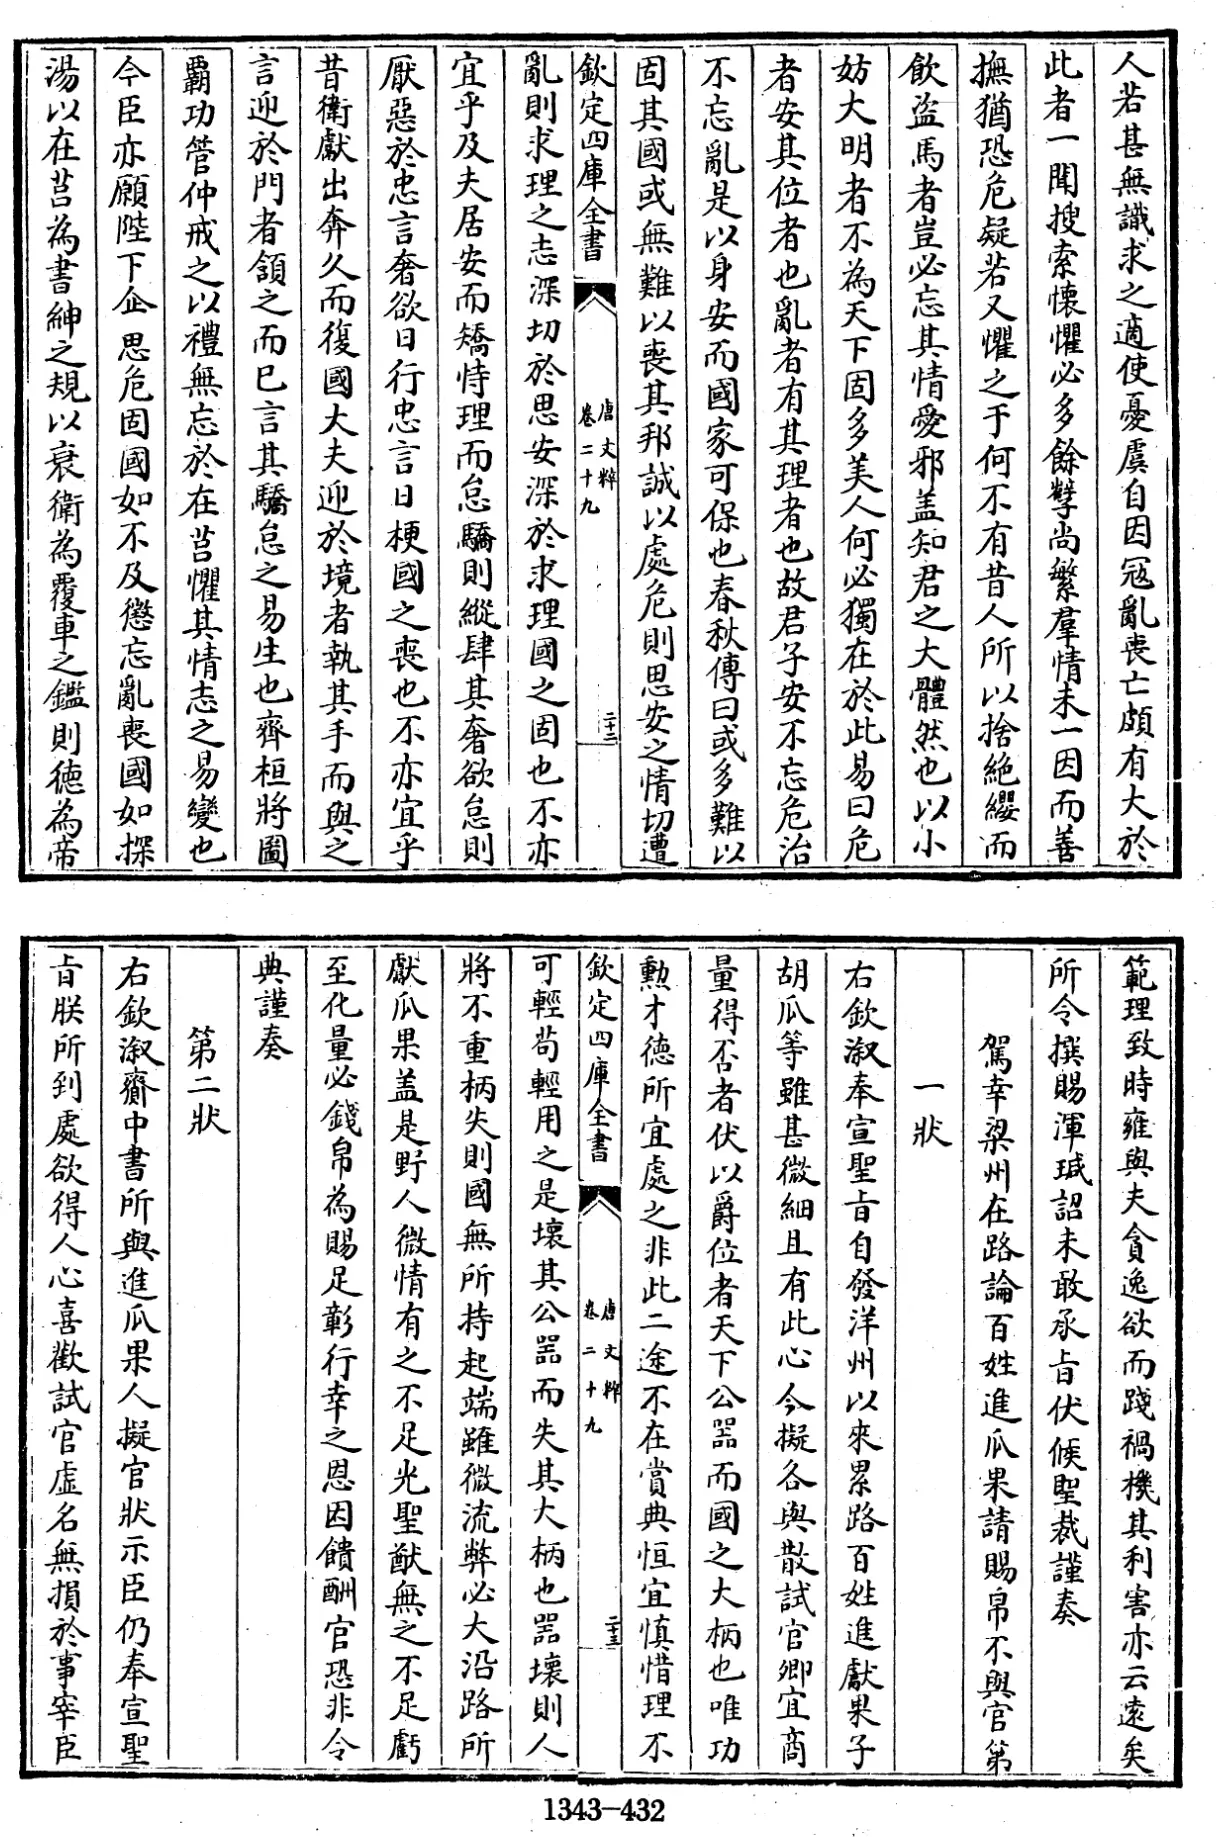 人若甚無識求之適使憂虞自因冦亂喪亡頗有大於
此者一聞搜索懷懼必多餘孽尚繁羣情未一因而善
撫猶恐危疑若又懼之于何不有昔人所以捨絶纓而
飲盗馬者豈必忘其情愛邪盖知君之大體然也以小
妨大明者不為天下固多美人何必獨在於此易曰危
者安其位者也亂者有其理者也故君子安不忘危治
不忘亂是以身安而國家可保也春秋傳曰或多難以
固其國或無難以喪其邦誠以處危則思安之情切遭
欽定四庫全書
唐文粹
卷二十九
二十二
亂則求理之志深切於思安深於求理國之固也不亦
宜乎及夫居安而矯恃理而怠驕則縱肆其奢欲怠則
厭惡於忠言奢欲日行忠言日梗國之喪也不亦宜乎
昔衛獻出奔久而復國大夫迎於境者執其手而與之
言迎於門者頷之而已言其驕怠之易生也齊桓將圖
覇功管仲戒之以禮無忘於在莒懼其情志之易變也
今臣亦願陛下企思危固國如不及懲忘亂喪國如探
湯以在莒為書紳之規以衰衛為覆車之鑑則徳為帝
範理致時雍與夫貪逸欲而踐禍機其利害亦云逺矣
所令撰賜渾瑊詔未敢承㫖伏候聖裁謹奏
駕幸梁州在路論百姓進瓜果請賜帛不與官第
一狀
右欽溆奉宣聖㫖自發洋州以來累路百姓進獻果子
胡瓜等雖甚微細且有此心今擬各與散試官卿宜商
量得否者伏以爵位者天下公器而國之大柄也唯功
勲才徳所宜處之非此二途不在賞典恒宜慎惜理不
欽定四庫全書
唐文粹
卷二十九
二十三
可輕苟輕用之是壞其公器而失其大柄也器壞則人
將不重柄失則國無所持起端雖微流弊必大沿路所
獻瓜果盖是野人微情有之不足光聖猷無之不足虧
至化量必錢帛為賜足彰行幸之恩因饋酬官恐非令
典謹奏
第二狀
右欽溆齎中書所與進瓜果人擬官狀示臣仍奉宣聖
㫖朕所到處欲得人心喜歡試官虚名無損於事宰臣
1343-432